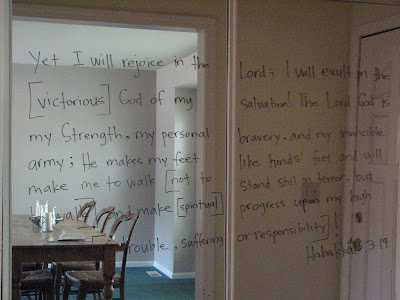 Yet I will rejoice in the Lord; I will exult in the
[victorious] God of my salvation! The Lord God is
my Strength, my personal bravery, and my invincible
army; He makes my feet like hinds' feet and will
make me to walk [not to stand still in terror, but
walk] and make [spiritual] progress upon my high
trouble, suffering or responsibility]!
Habakkuk 3:19